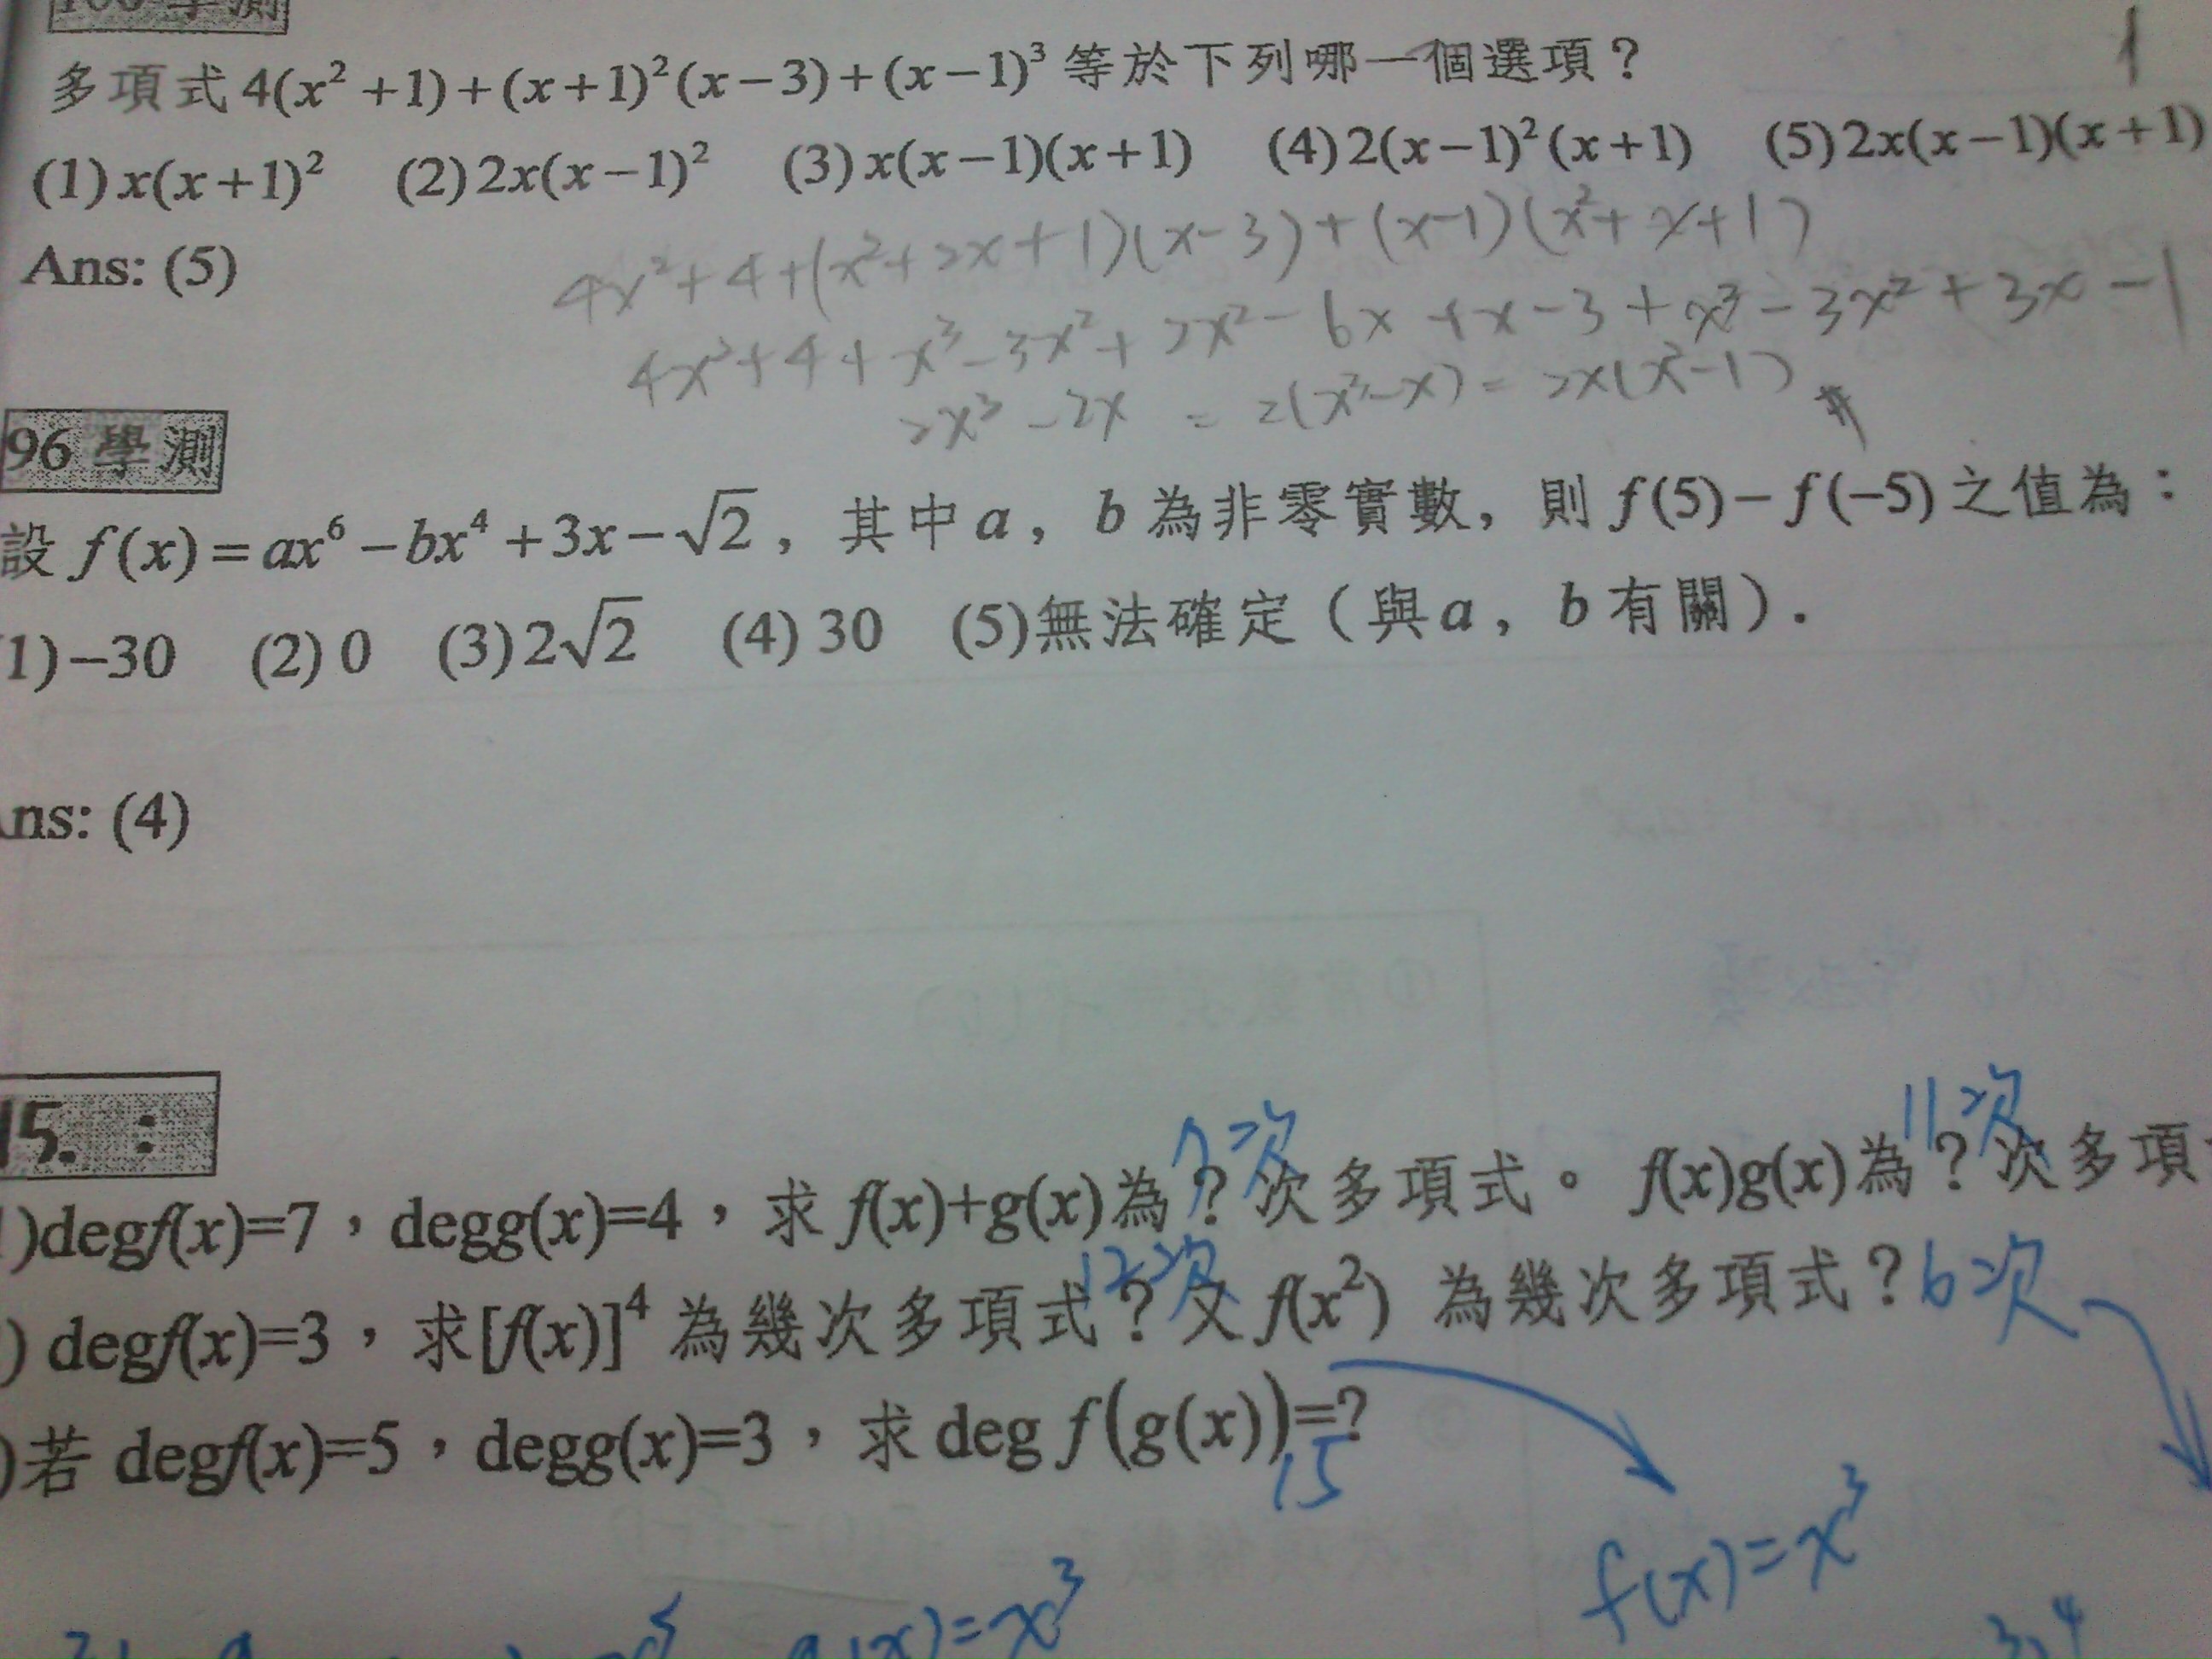 100 學測
多項式 4(x²+1)+(x+1)²(x−3)+(x−1)³ 等於下列哪一個選項？ 1
(1) x(x+1)² (2) 2x(x−1)² (3) x(x−1)(x+1) (4) 2(x−1)²(x+1) (5) 2x(x−1)(x+1)
4x²+4+(x²+2x+1)(x-3)+(x-1)(x²+x+1)
Ans: (5)
4x²+4+x³-3x²+2x²-6x+x-3+x³-3x²+3x-1
2x³-2x = 2(x³-x) = 2x(x²-1) #
96 學測
設 f(x)=ax⁶−bx⁴+3x−√2，其中 a，b 為非零實數，則 f(5)−f(−5) 之值為：
1)−30 (2) 0 (3) 2√2 (4) 30 (5)無法確定（與 a，b 有關）.
ns: (4)
15. :
7次 11次
)degf(x)=7，degg(x)=4，求 f(x)+g(x)為？次多項式。 f(x)g(x)為？次多項
12次
) degf(x)=3，求[f(x)]⁴ 為幾次多項式？又 f(x²) 為幾次多項式？6次
)若 degf(x)=5，degg(x)=3，求 deg f(g(x))=?
15
f(x)=x³
g(x)=x³